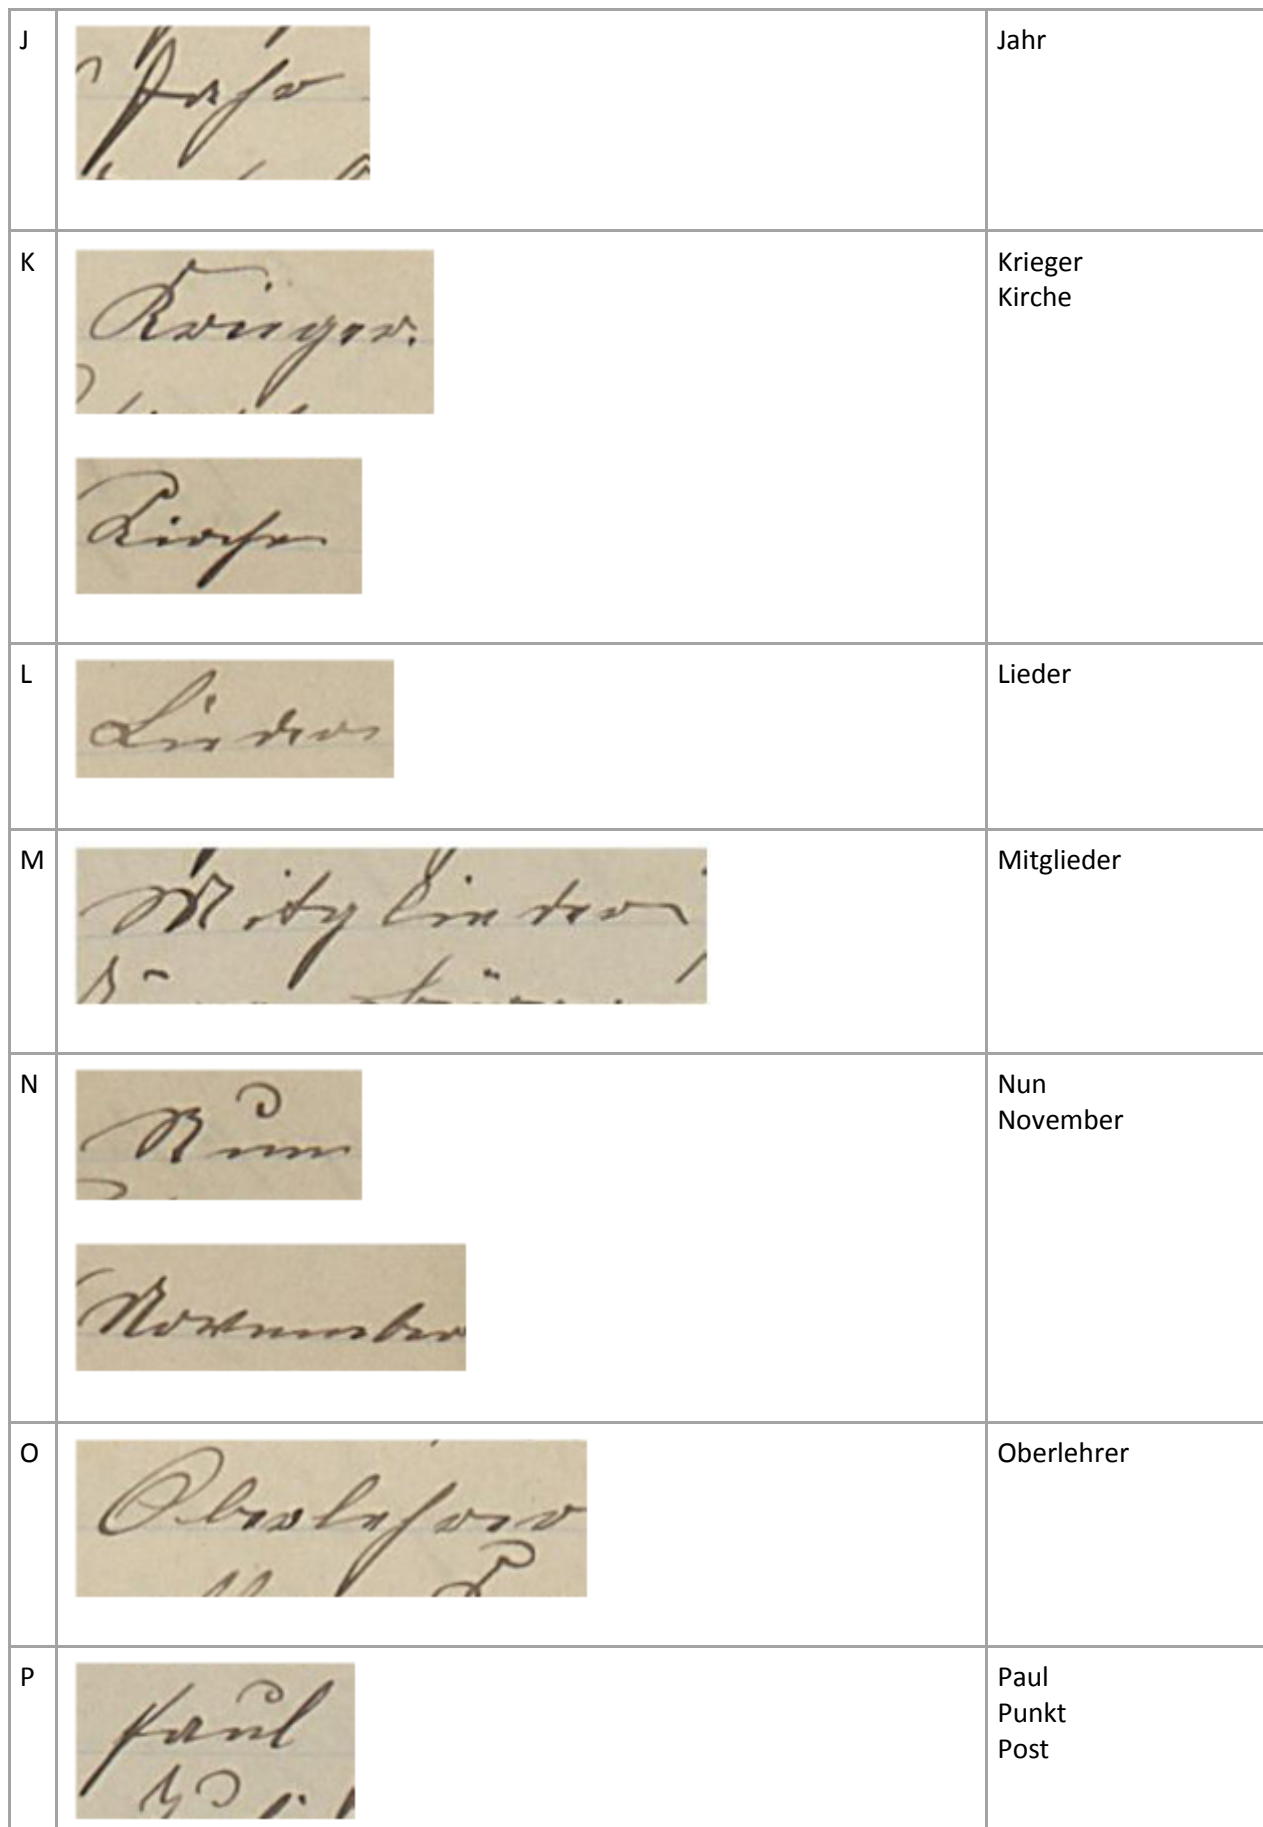 J
Jahr
Jahr
K
Krieger.
Krieger
Kirche
Kirche
L
Lieder
Lieder
M
Mitglieder
Mitglieder
N
Nun
Nun
November
November
O
Oberlehrer
Oberlehrer
P
Paul
Paul
Punkt
Post